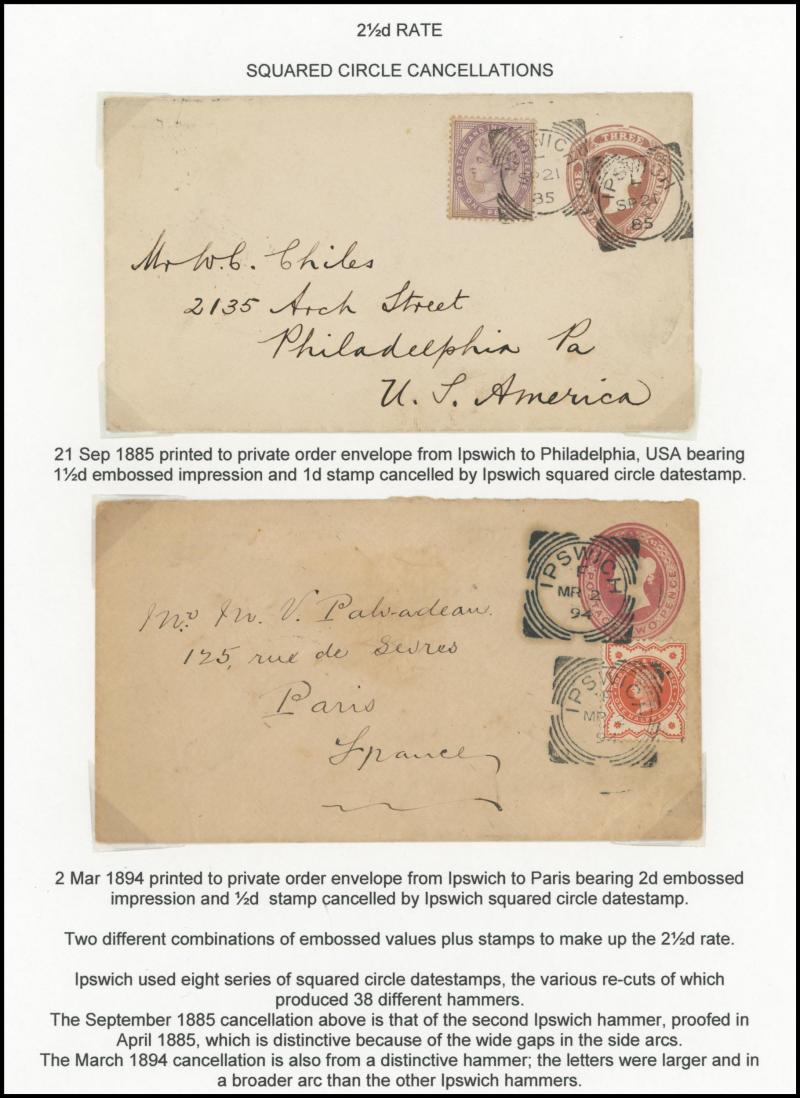 2½d RATE
SQUARED CIRCLE CANCELLATIONS
POSTAGE AND
IPSWICH
SP 21
85
THREE
IPSWICH
SP 21
85
Mr W. C. Chiles
2135 Arch Street
Philadelphia Pa
U. S. America
21 Sep 1885 printed to private order envelope from Ipswich to Philadelphia, USA bearing
1½d embossed impression and 1d stamp cancelled by Ipswich squared circle datestamp.
IPSWICH
F
MR 2
94
POSTAGE TWO PENCE
IPSWICH
MR
94
M. V.
125, rue de Sevres
Paris
France
2 Mar 1894 printed to private order envelope from Ipswich to Paris bearing 2d embossed
impression and ½d stamp cancelled by Ipswich squared circle datestamp.
Two different combinations of embossed values plus stamps to make up the 2½d rate.
Ipswich used eight series of squared circle datestamps, the various re-cuts of which
produced 38 different hammers.
The September 1885 cancellation above is that of the second Ipswich hammer, proofed in
April 1885, which is distinctive because of the wide gaps in the side arcs.
The March 1894 cancellation is also from a distinctive hammer; the letters were larger and in
a broader arc than the other Ipswich hammers.